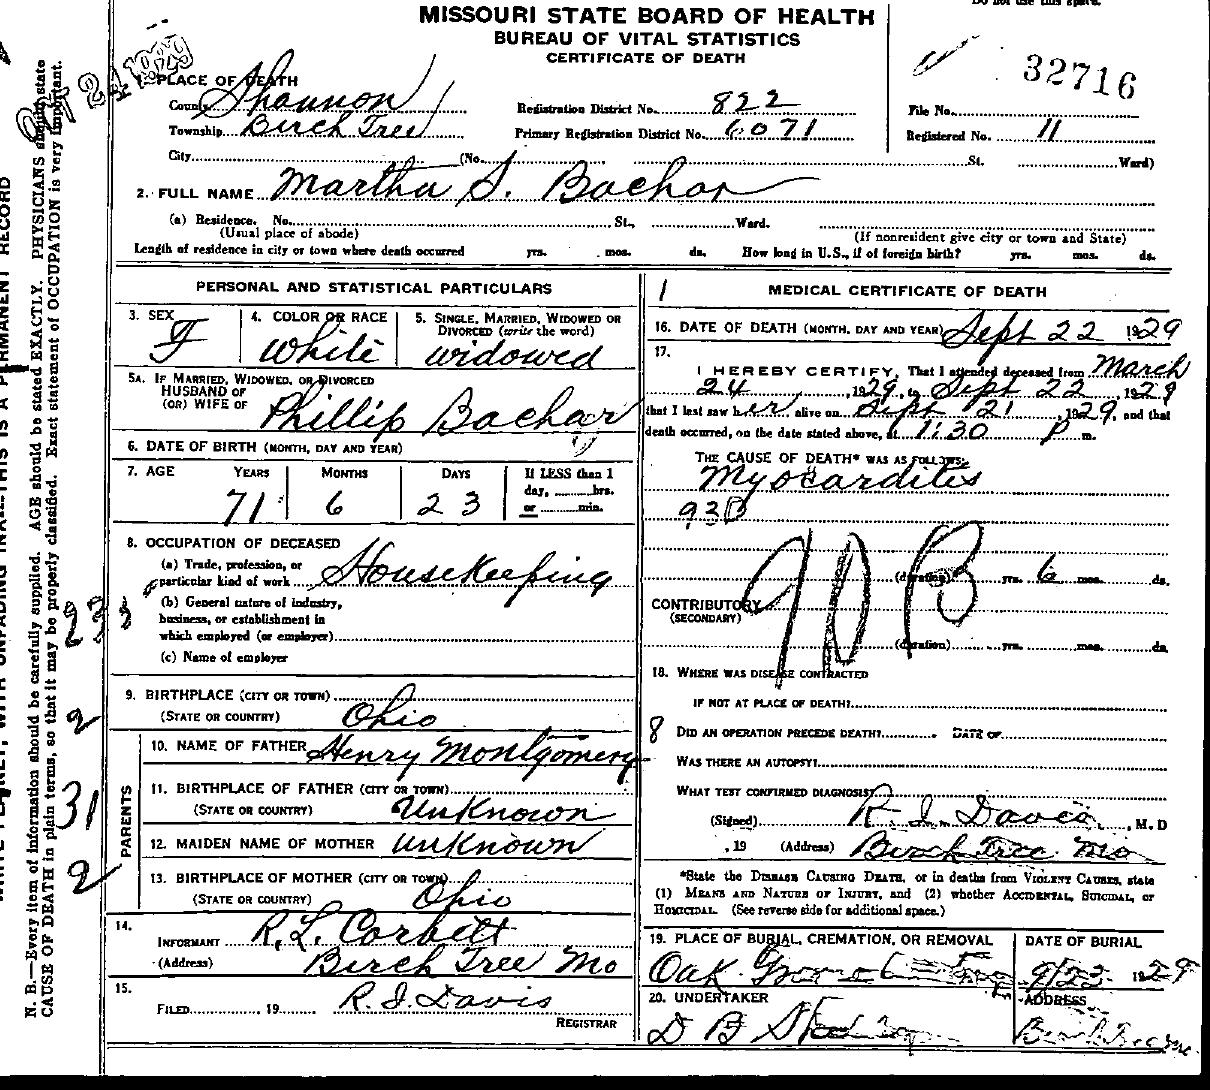 Do not use this space.
MISSOURI STATE BOARD OF HEALTH
BUREAU OF VITAL STATISTICS
CERTIFICATE OF DEATH
32716
1. PLACE OF DEATH
County Shannon
Township Birch Tree
City (No. St. Ward)
Registration District No. 822
Primary Registration District No. 6071
File No.
Registered No. 11
2. FULL NAME Martha S. Bachar
(a) Residence. No. St., Ward.
(Usual place of abode)
(If nonresident give city or town and State)
Length of residence in city or town where death occurred yrs. mos. ds. How long in U.S., if of foreign birth? yrs. mos. ds.
PERSONAL AND STATISTICAL PARTICULARS
3. SEX F
4. COLOR OR RACE White
5. SINGLE, MARRIED, WIDOWED OR DIVORCED (write the word) widowed
5A. IF MARRIED, WIDOWED, OR DIVORCED
HUSBAND OF
(OR) WIFE OF Phillip Bachar
6. DATE OF BIRTH (MONTH, DAY AND YEAR)
7. AGE YEARS MONTHS DAYS If LESS than 1
day, hrs.
or min.
71 6 23
8. OCCUPATION OF DECEASED
(a) Trade, profession, or
particular kind of work Housekeeping
(b) General nature of industry,
business, or establishment in
which employed (or employer)
(c) Name of employer
9. BIRTHPLACE (CITY OR TOWN)
(STATE OR COUNTRY) Ohio
PARENTS
10. NAME OF FATHER Henry Montgomery
11. BIRTHPLACE OF FATHER (CITY OR TOWN)
(STATE OR COUNTRY) Unknown
12. MAIDEN NAME OF MOTHER Unknown
13. BIRTHPLACE OF MOTHER (CITY OR TOWN)
(STATE OR COUNTRY) Ohio
14.
INFORMANT R. L. Corbett
(Address) Birch Tree Mo
15.
FILED 19 R. I. Davis
REGISTRAR
1
MEDICAL CERTIFICATE OF DEATH
16. DATE OF DEATH (MONTH, DAY AND YEAR) Sept 22 1929
17.
I HEREBY CERTIFY, That I attended deceased from March
24, 1929, to Sept 22, 1929
that I last saw her alive on Sept 21, 1929, and that
death occurred, on the date stated above, at 1:30 P m.
THE CAUSE OF DEATH* WAS AS FOLLOWS:
Myocarditis
93D
90B
(duration) yrs. 6 mos. ds.
CONTRIBUTORY
(SECONDARY)
(duration) yrs. mos. ds.
18. WHERE WAS DISEASE CONTRACTED
IF NOT AT PLACE OF DEATH?
8 DID AN OPERATION PRECEDE DEATH? DATE OF
WAS THERE AN AUTOPSY?
WHAT TEST CONFIRMED DIAGNOSIS?
(Signed) R. I. Davis, M. D
, 19 (Address) Birch Tree Mo
*State the DISEASE CAUSING DEATH, or in deaths from VIOLENT CAUSES, state
(1) MEANS AND NATURE OF INJURY, and (2) whether ACCIDENTAL, SUICIDAL, or
HOMICIDAL. (See reverse side for additional space.)
19. PLACE OF BURIAL, CREMATION, OR REMOVAL
Oak
DATE OF BURIAL
9/23 1929
20. UNDERTAKER
D B
ADDRESS
N. B.—Every item of information should be carefully supplied. AGE should be stated EXACTLY. PHYSICIANS should state
CAUSE OF DEATH in plain terms, so that it may be properly classified. Exact statement of OCCUPATION is very important.
31
2